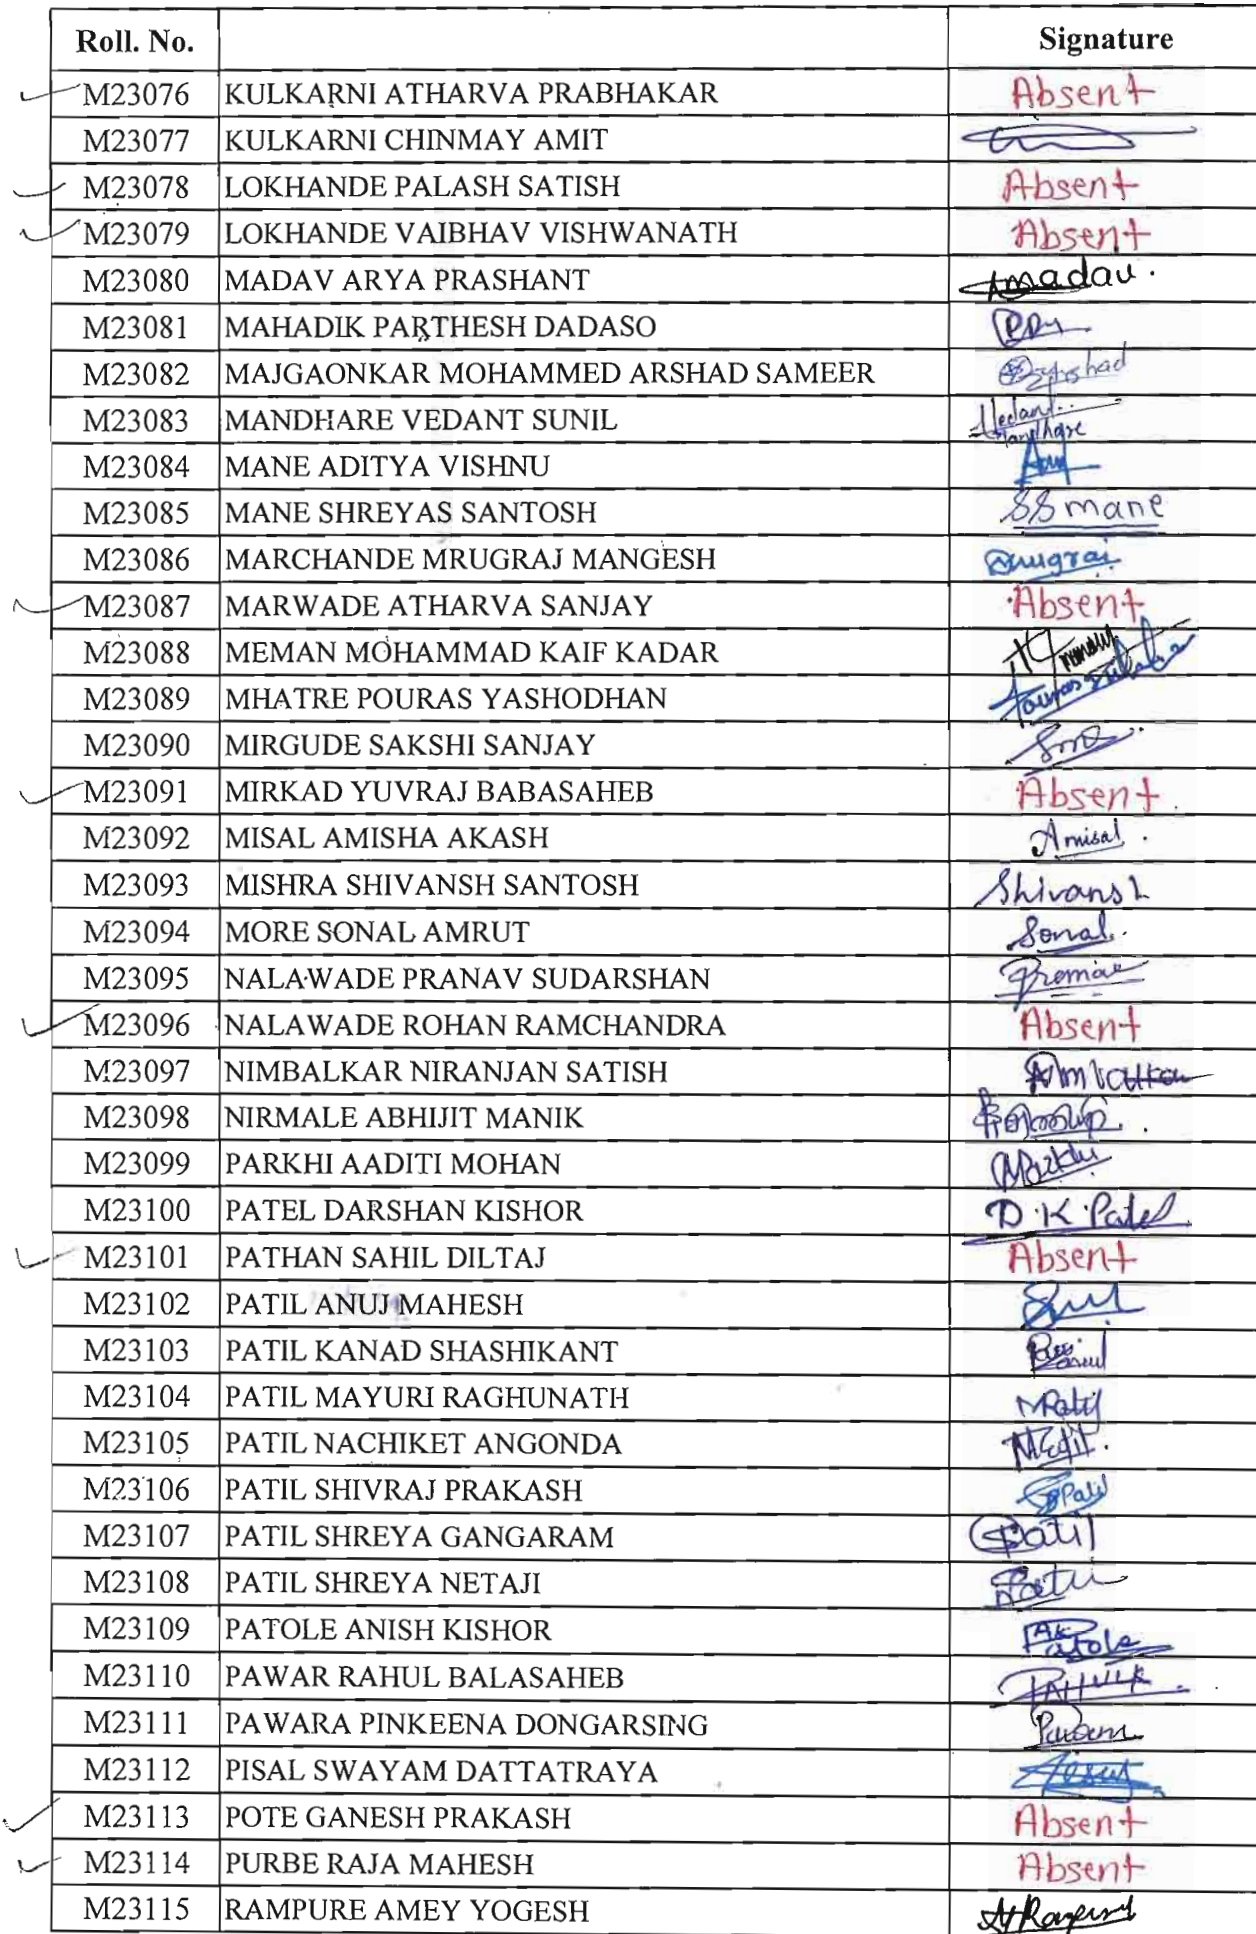 Roll. No. Signature
M23076 KULKARNI ATHARVA PRABHAKAR Absent
M23077 KULKARNI CHINMAY AMIT
M23078 LOKHANDE PALASH SATISH Absent
M23079 LOKHANDE VAIBHAV VISHWANATH Absent
M23080 MADAV ARYA PRASHANT
M23081 MAHADIK PARTHESH DADASO
M23082 MAJGAONKAR MOHAMMED ARSHAD SAMEER
M23083 MANDHARE VEDANT SUNIL
M23084 MANE ADITYA VISHNU
M23085 MANE SHREYAS SANTOSH SSmane
M23086 MARCHANDE MRUGRAJ MANGESH
M23087 MARWADE ATHARVA SANJAY Absent
M23088 MEMAN MOHAMMAD KAIF KADAR
M23089 MHATRE POURAS YASHODHAN
M23090 MIRGUDE SAKSHI SANJAY
M23091 MIRKAD YUVRAJ BABASAHEB Absent
M23092 MISAL AMISHA AKASH Amisal
M23093 MISHRA SHIVANSH SANTOSH Shivansh
M23094 MORE SONAL AMRUT Sonal
M23095 NALAWADE PRANAV SUDARSHAN
M23096 NALAWADE ROHAN RAMCHANDRA Absent
M23097 NIMBALKAR NIRANJAN SATISH
M23098 NIRMALE ABHIJIT MANIK
M23099 PARKHI AADITI MOHAN
M23100 PATEL DARSHAN KISHOR D.K.Patel
M23101 PATHAN SAHIL DILTAJ Absent
M23102 PATIL ANUJ MAHESH
M23103 PATIL KANAD SHASHIKANT
M23104 PATIL MAYURI RAGHUNATH MPatil
M23105 PATIL NACHIKET ANGONDA
M23106 PATIL SHIVRAJ PRAKASH SPatil
M23107 PATIL SHREYA GANGARAM
M23108 PATIL SHREYA NETAJI
M23109 PATOLE ANISH KISHOR
M23110 PAWAR RAHUL BALASAHEB
M23111 PAWARA PINKEENA DONGARSING
M23112 PISAL SWAYAM DATTATRAYA
M23113 POTE GANESH PRAKASH Absent
M23114 PURBE RAJA MAHESH Absent
M23115 RAMPURE AMEY YOGESH